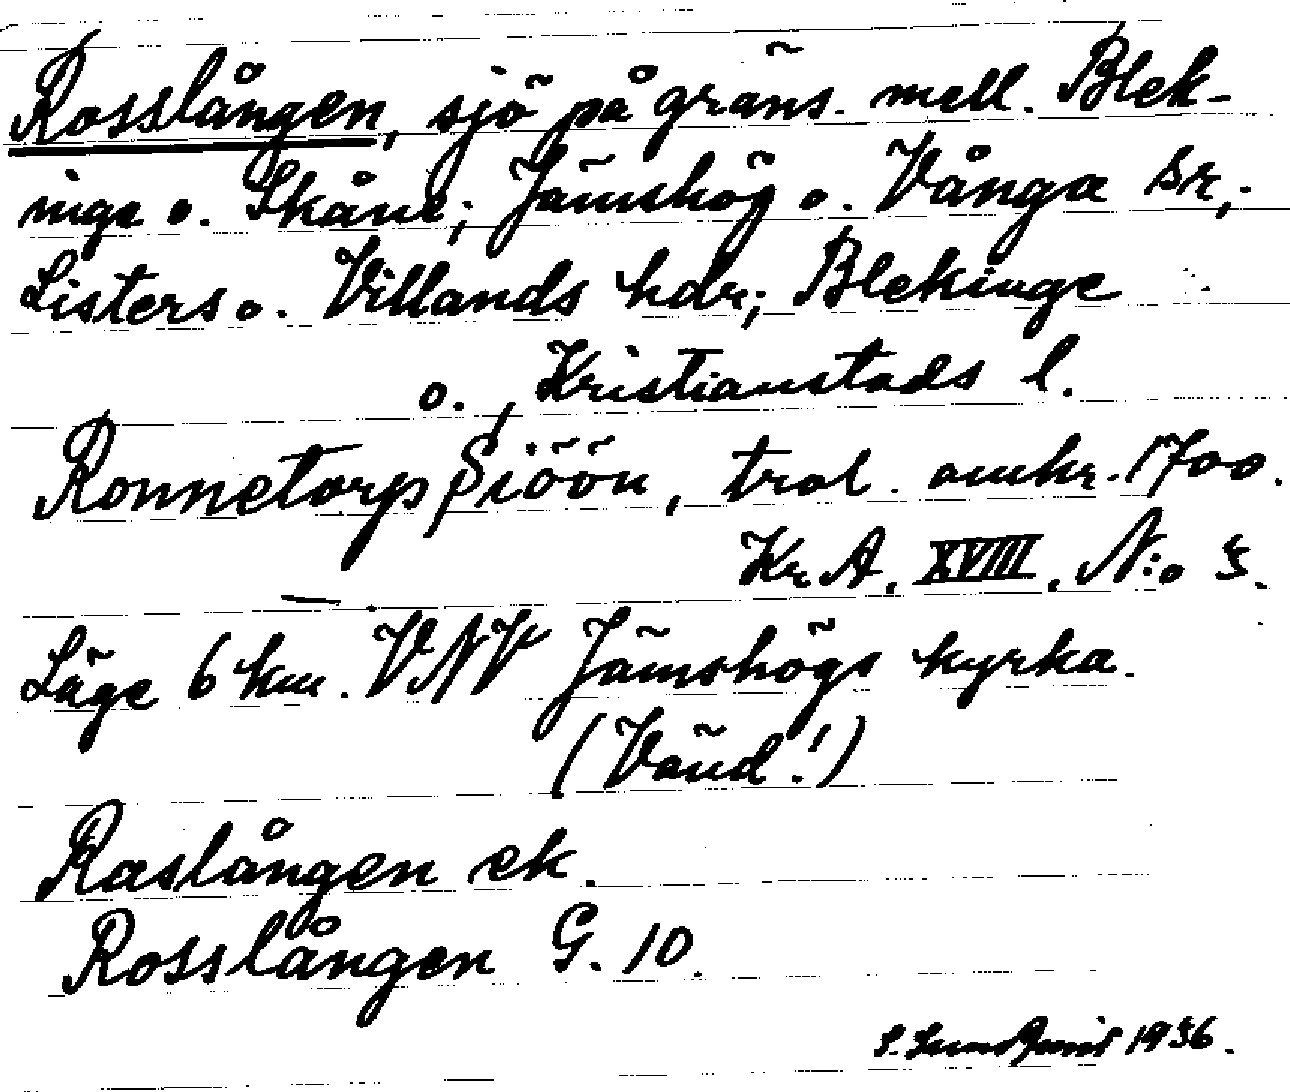 Rosslången, sjö på gräns. mell. Blek-
inge o. Skåne; Jämshög o. Vånga sr,.
Listers o. Villands hdr; Blekinge
o. Kristianstads l.
Ronnetorp Siöön, trol. omkr. 1700.
Kr. A. XVIII. N:o 5.
Läge 6 km. VNV Jämshögs kyrka.
(Vänd!)
Raslången ek.
Rosslången G. 10.
1936.